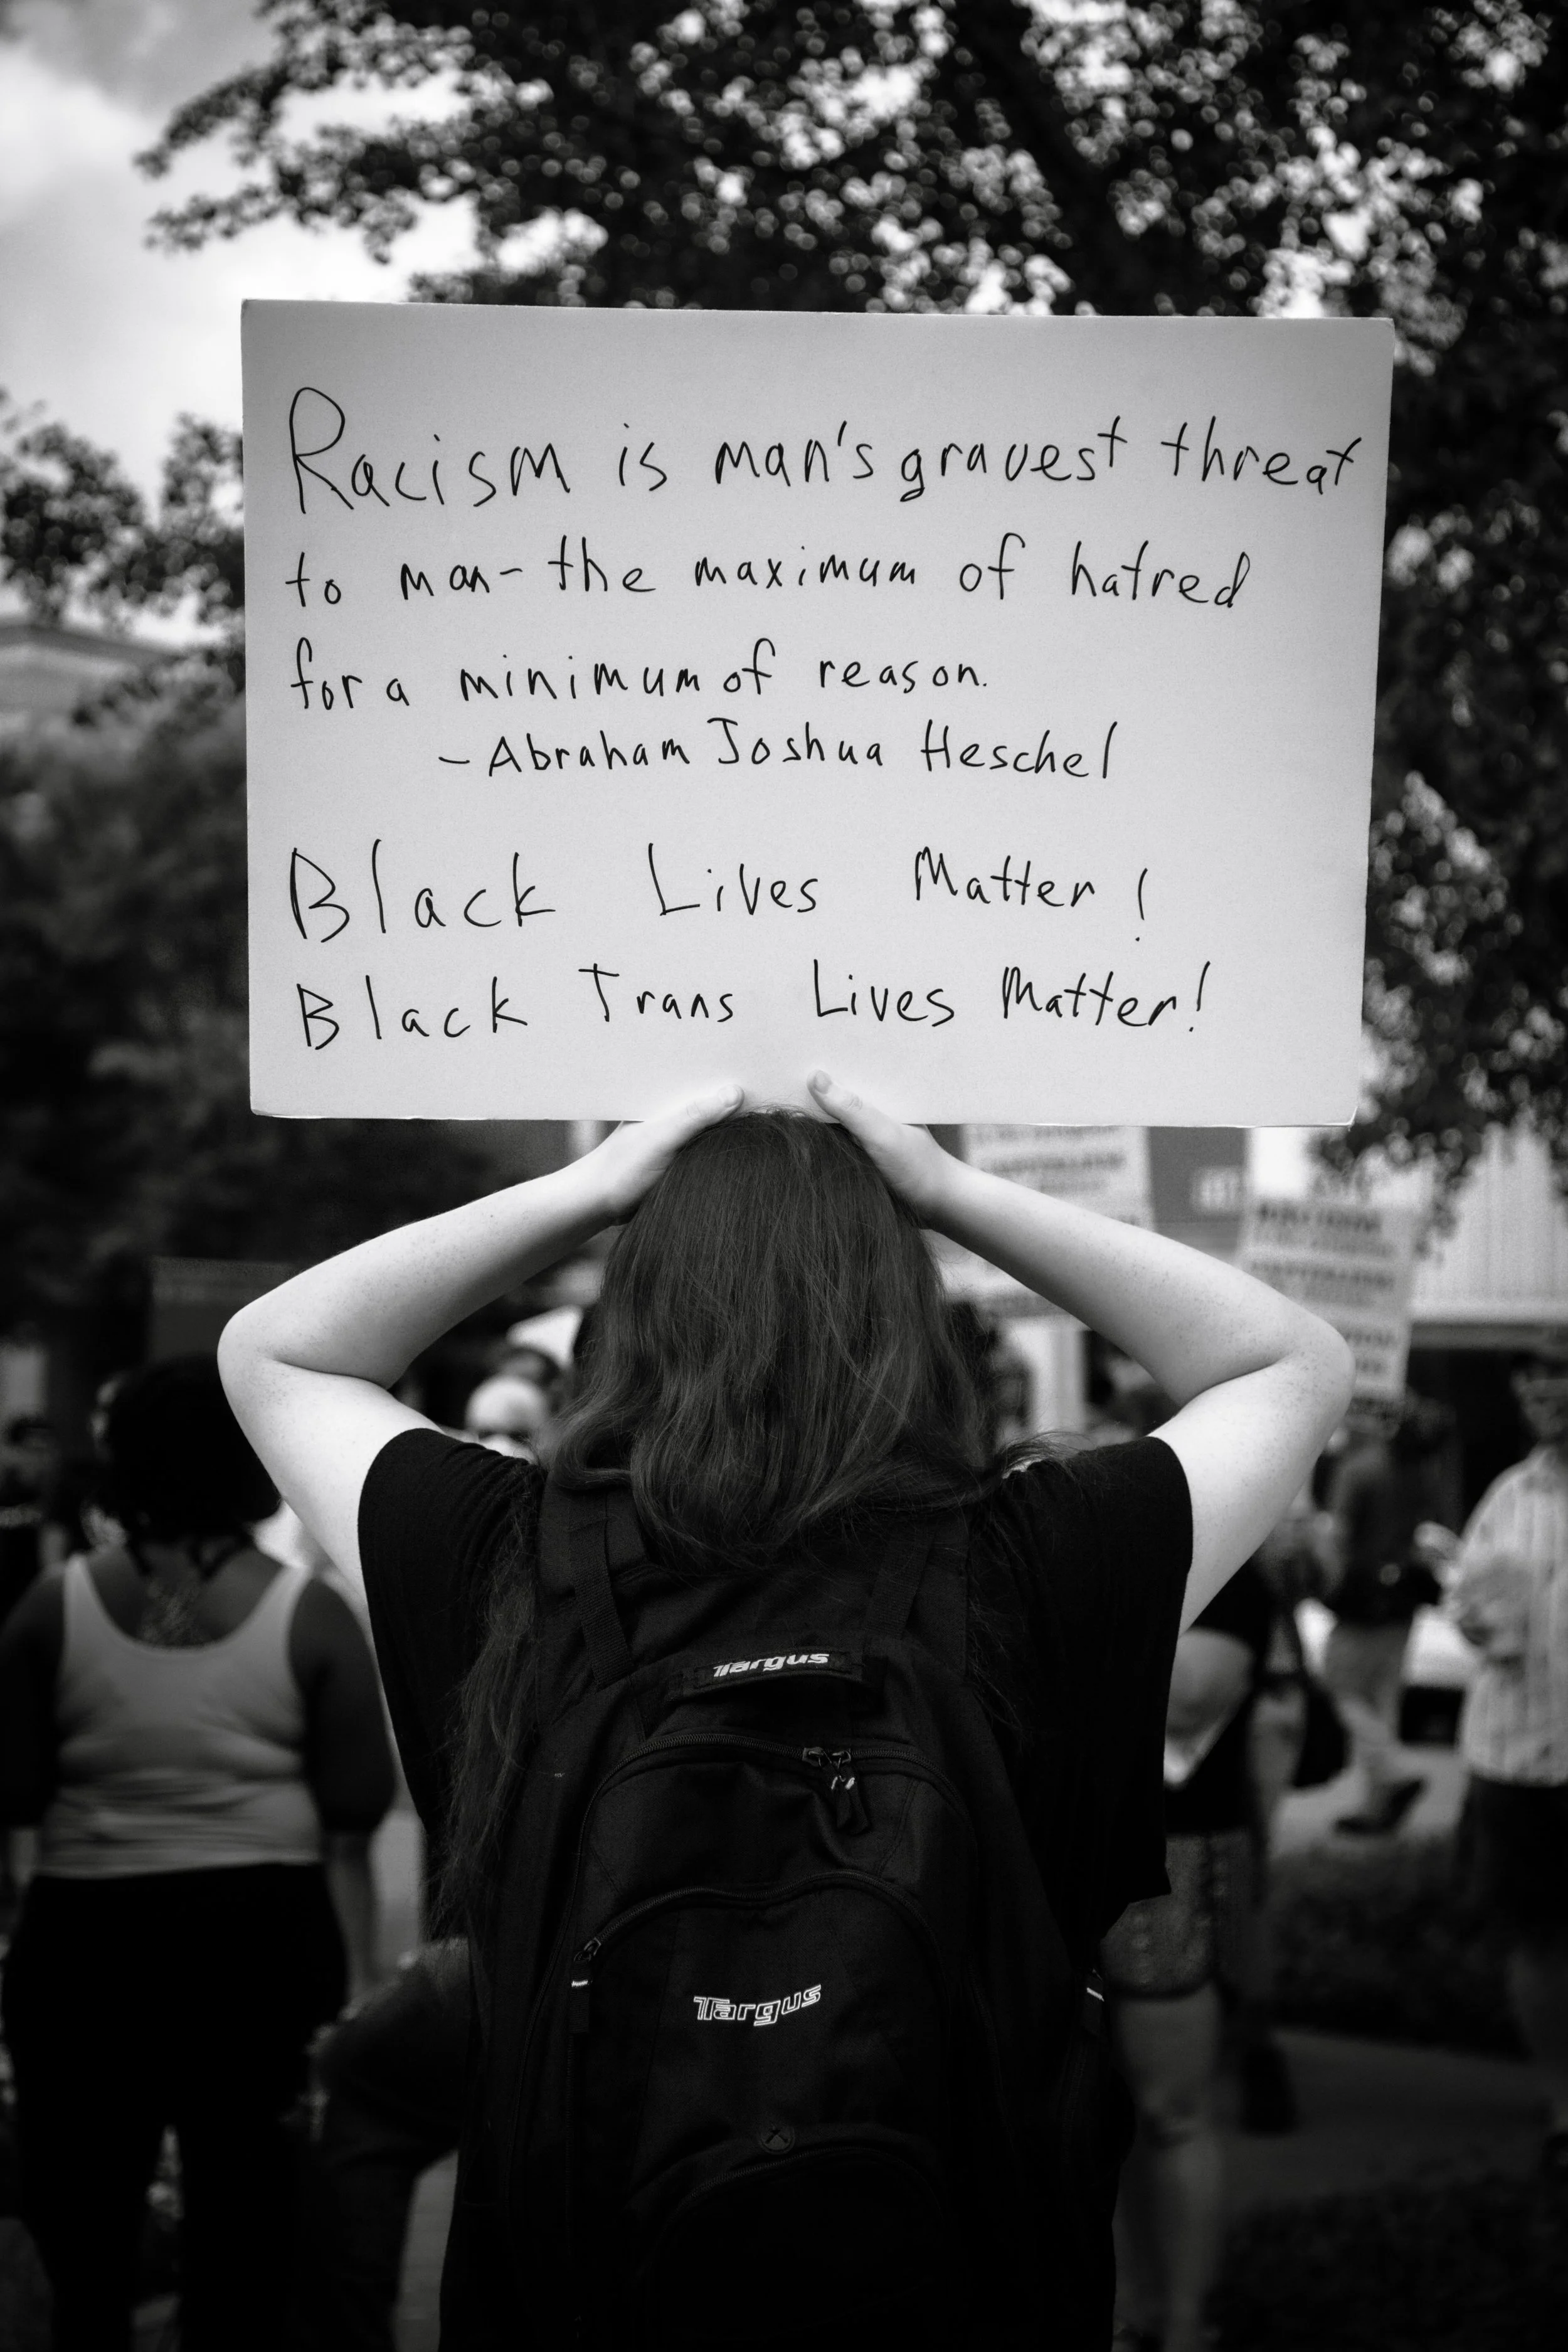 Racism is man's gravest threat
to man- the maximum of hatred
for a minimum of reason.
- Abraham Joshua Heschel
Black Lives Matter!
Black Trans Lives Matter!
Targus
Targus